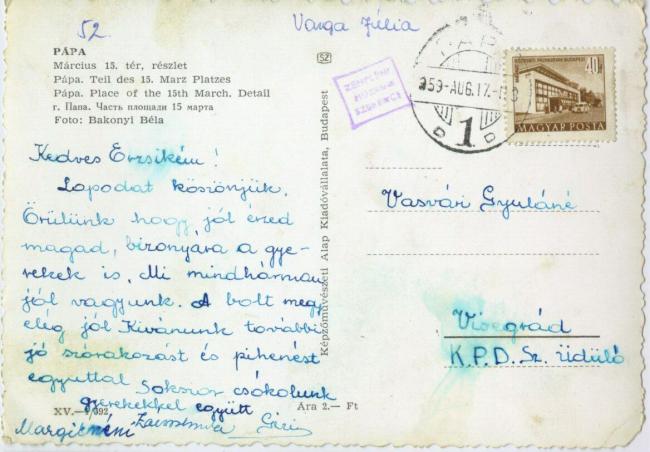 52.
Varga Júlia
PÁPA
Március 15. tér, részlet
Pápa. Teil des 15. Marz Platzes
Pápa. Place of the 15th March. Detail
г. Папа. Часть площади 15 марта
Foto: Bakonyi Béla
Képzőművészeti Alap Kiadóvállalata, Budapest
SZ
959-AUG.17.
1
40f
MAGYAR POSTA
Kedves Erzsikém!
Lapodat köszönjük.
Örülünk hogy jól érzed
magad, bizonyára a gye-
rekek is. Mi mindhárman
jól vagyunk. A bolt megy
elég jól Kivánunk további
jó szorakozást és pihenést
egyuttal Sokszor csókolunk
gyerekekkel együtt
Margitnéni
Vasvári Gyuláné
Visegrád
K.P.D.Sz. Üdülő
Ára 2.— Ft